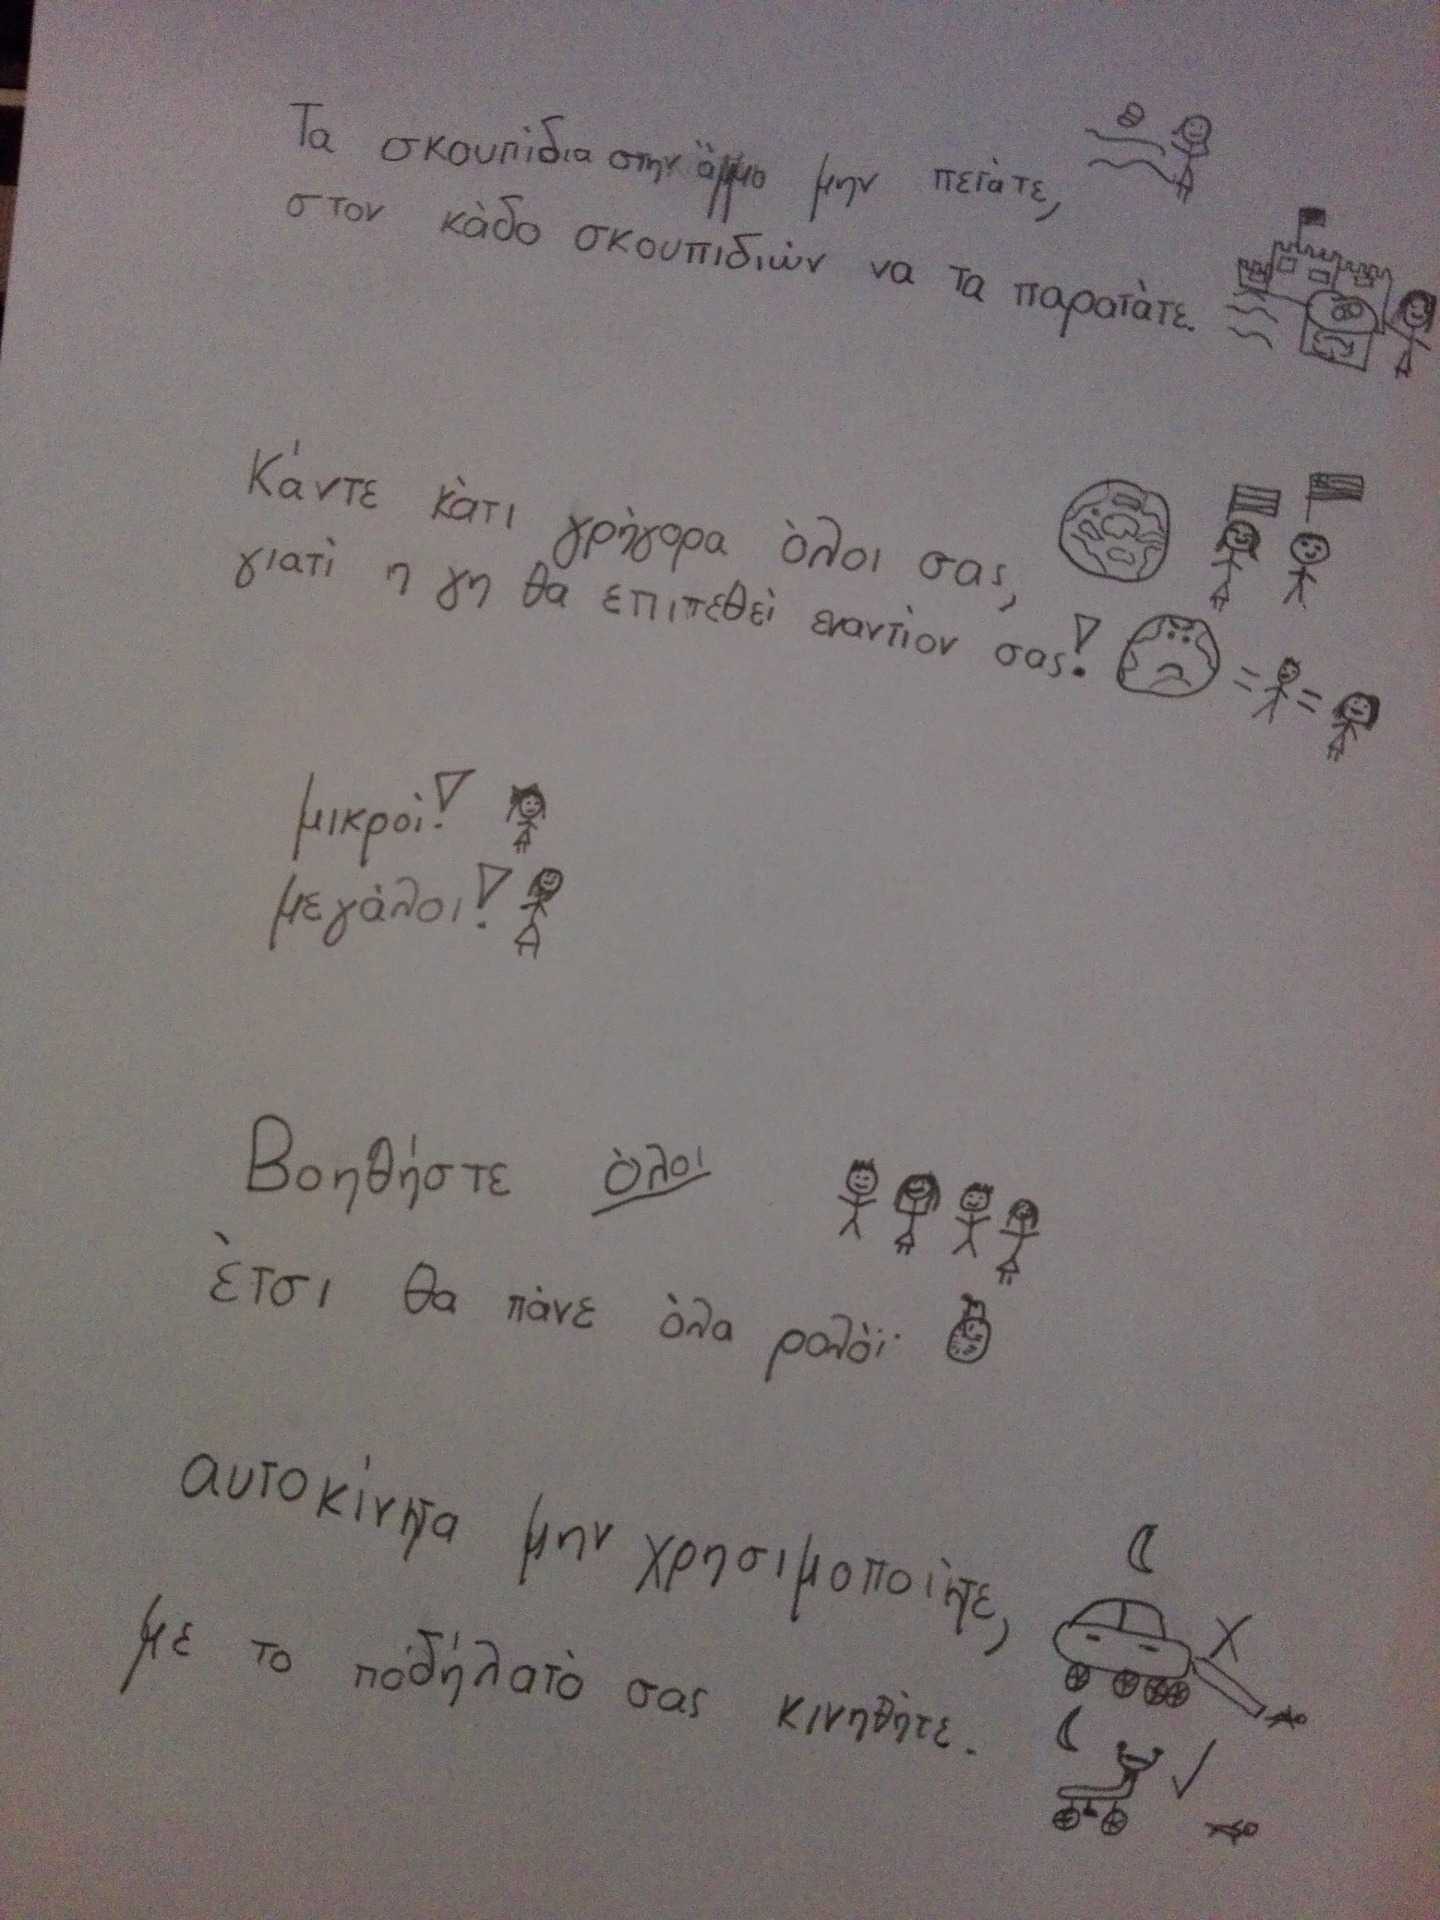 Τα σκουπίδια στην άμμο μην πετάτε,
στον κάδο σκουπιδιών να τα παρατάτε.
Κάντε κάτι γρήγορα όλοι σας,
γιατί η γη θα επιτεθεί εναντίον σας!
μικροί!
μεγάλοι!
Βοηθήστε όλοι
έτσι θα πάνε όλα ρολόι
αυτοκίνητα μην χρησιμοποιήτε,
με το ποδήλατό σας κινηθήτε.